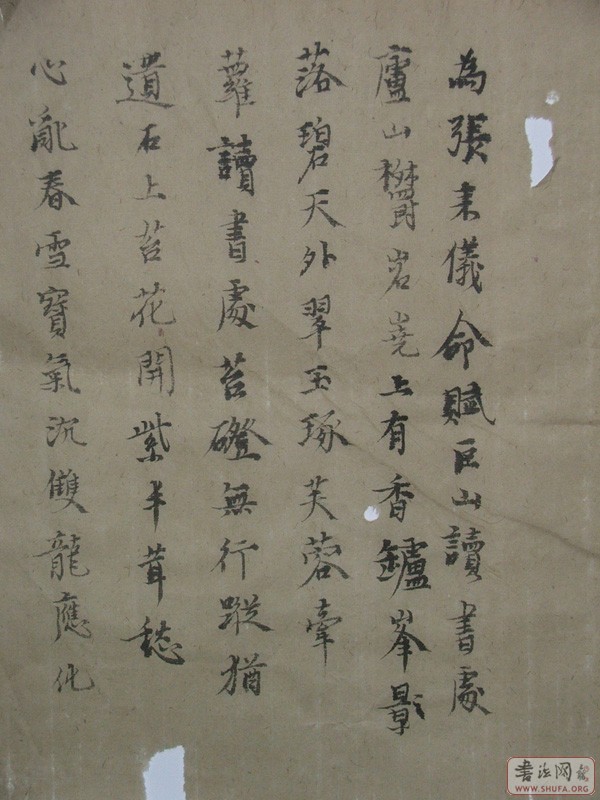 為張耒儀命賦匡山讀書處
廬山欝岩嶤上有香鑪峯影
落碧天外翠玉琢芙蓉牽
蘿讀書處苔磴無行蹤猶
遺石上苔花開紫半茸愁
心亂春雪寶氣沉雙龍應化
書法网
WWW.SHUFA.ORG